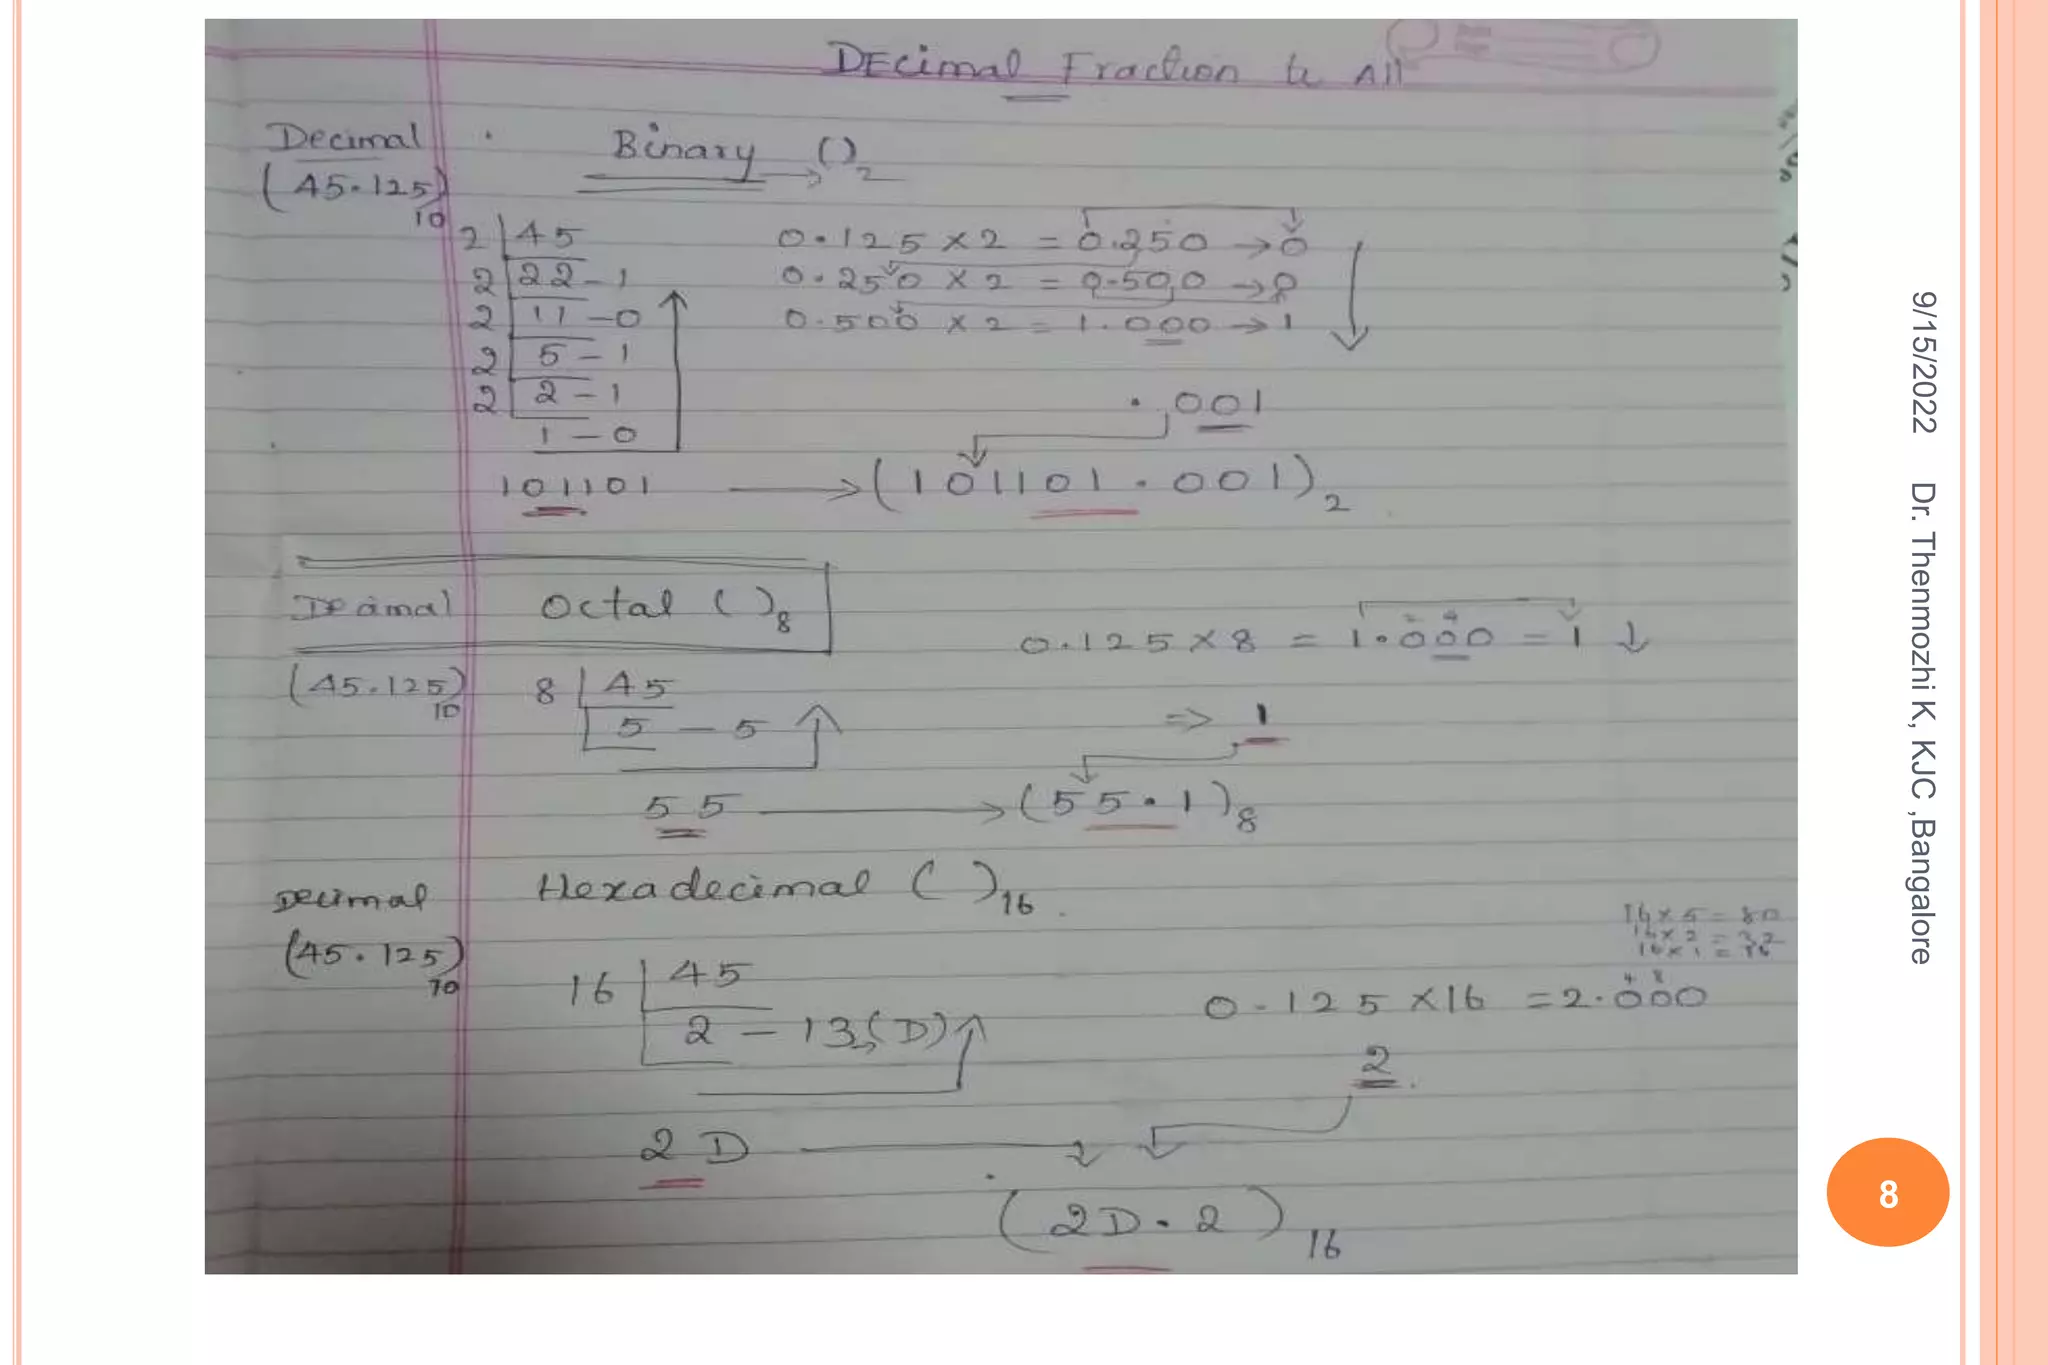 DEcimal Fraction to All
Decimal Binary ( )2
(45.125)10
2 45
2 22 - 1
2 11 - 0
2 5 - 1
2 2 - 1
1 - 0
101101
0.125 × 2 = 0.250 → 0
0.250 × 2 = 0.500 → 0
0.500 × 2 = 1.000 → 1
.001
→ (101101.001)2
Decimal Octal ( )8
(45.125)10
8 45
5 - 5
0.125 × 8 = 1.000 = 1 ↓
⇒ 1
55 → (55.1)8
Decimal Hexadecimal ( )16
(45.125)10
16 45
2 - 13,(D)
16 × 5 = 80
16 × 2 = 32
16 × 1 = 16
0.125 × 16 = 2.000
2
2D
(2D.2)16
9/15/2022 Dr. Thenmozhi K, KJC ,Bangalore
8